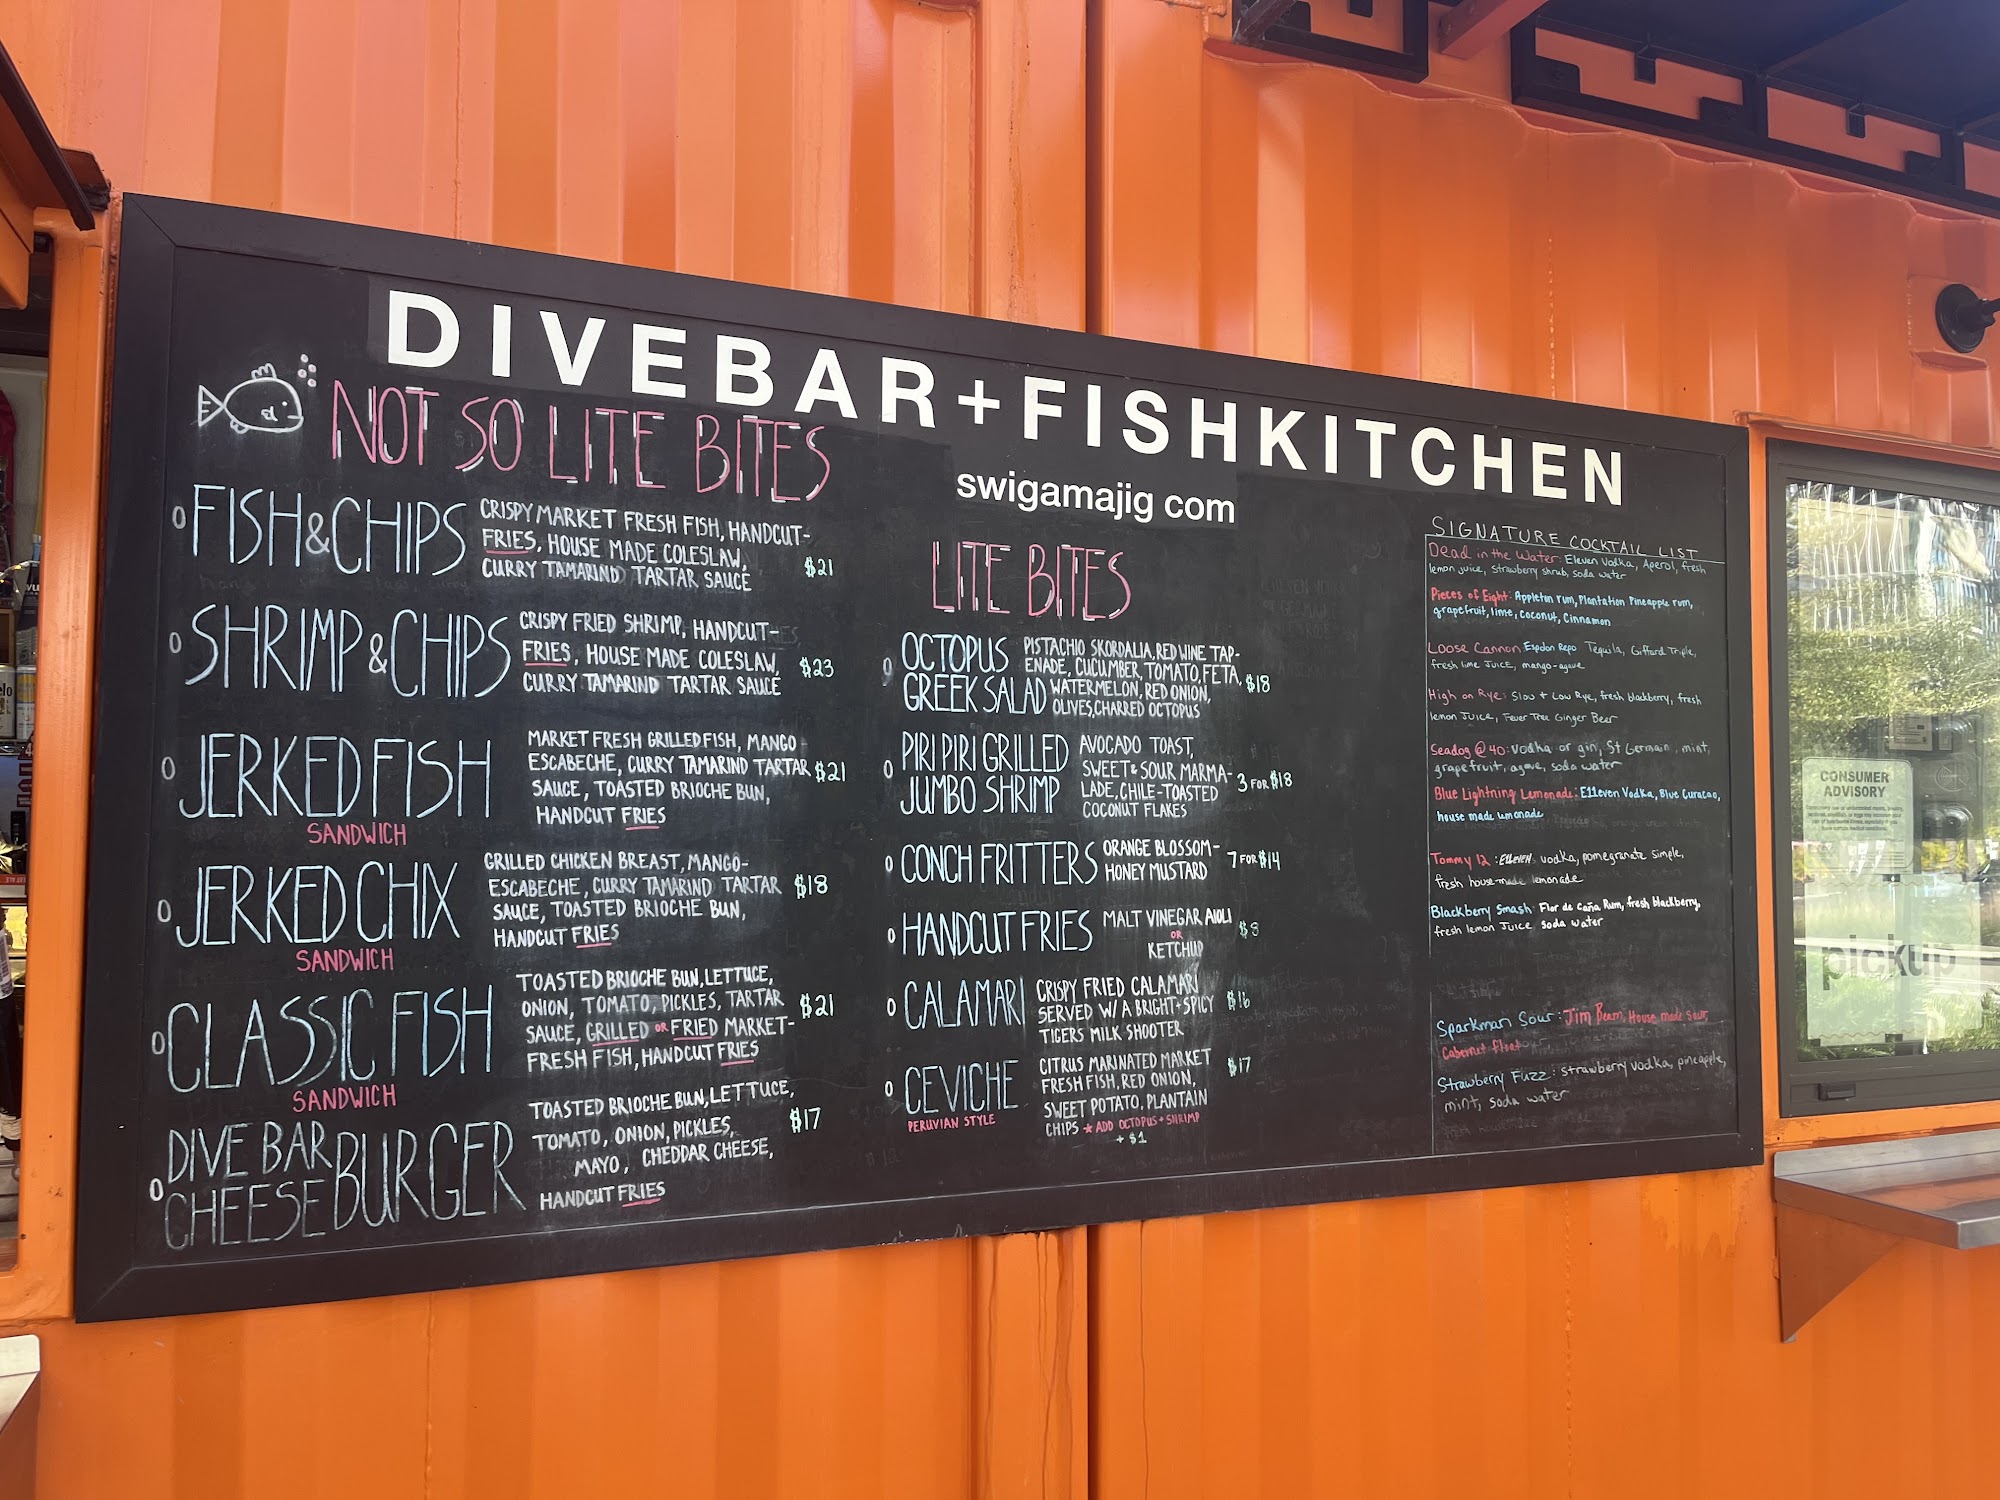 DIVEBAR+FISHKITCHEN
swigamajig com
NOT SO LITE BITES
FISH & CHIPS
CRISPY MARKET FRESH FISH, HANDCUT-
FRIES, HOUSE MADE COLESLAW,
CURRY TAMARIND TARTAR SAUCE
$21
SHRIMP & CHIPS
CRISPY FRIED SHRIMP, HANDCUT-
FRIES, HOUSE MADE COLESLAW,
CURRY TAMARIND TARTAR SAUCE
$23
JERKED FISH
SANDWICH
MARKET FRESH GRILLED FISH, MANGO
ESCABECHE, CURRY TAMARIND TARTAR
SAUCE, TOASTED BRIOCHE BUN,
HANDCUT FRIES
$21
JERKED CHIX
SANDWICH
GRILLED CHICKEN BREAST, MANGO-
ESCABECHE, CURRY TAMARIND TARTAR
SAUCE, TOASTED BRIOCHE BUN,
HANDCUT FRIES
$18
CLASSIC FISH
SANDWICH
TOASTED BRIOCHE BUN, LETTUCE,
ONION, TOMATO, PICKLES, TARTAR
SAUCE, GRILLED OR FRIED MARKET-
FRESH FISH, HANDCUT FRIES
$21
DIVE BAR
CHEESE BURGER
TOASTED BRIOCHE BUN, LETTUCE,
TOMATO, ONION, PICKLES,
MAYO, CHEDDAR CHEESE,
HANDCUT FRIES
$17
LITE BITES
OCTOPUS
GREEK SALAD
PISTACHIO SKORDALIA, RED WINE TAP-
ENADE, CUCUMBER, TOMATO, FETA,
WATERMELON, RED ONION,
OLIVES, CHARRED OCTOPUS
$18
PIRI PIRI GRILLED
JUMBO SHRIMP
AVOCADO TOAST,
SWEET & SOUR MARMA-
LADE, CHILE-TOASTED
COCONUT FLAKES
3 FOR $18
CONCH FRITTERS
ORANGE BLOSSOM-
HONEY MUSTARD
7 FOR $14
HANDCUT FRIES
MALT VINEGAR AIOLI
OR
KETCHUP
$8
CALAMARI
CRISPY FRIED CALAMARI
SERVED W/ A BRIGHT+SPICY
TIGERS MILK SHOOTER
$16
CEVICHE
PERUVIAN STYLE
CITRUS MARINATED MARKET
FRESH FISH, RED ONION,
SWEET POTATO, PLANTAIN
CHIPS * ADD OCTOPUS + SHRIMP
+ $1
$17
SIGNATURE COCKTAIL LIST
Dead in the Water: Eleven Vodka, Aperol, fresh
lemon juice, strawberry shrub, soda water
Pieces of Eight: Appleton rum, Plantation Pineapple rum,
grapefruit, lime, coconut, Cinnamon
Loose Cannon: Espolon Repo Tequila, Giffard Triple,
fresh lime JUICE, mango-agave
High on Rye: Slow + Low Rye, fresh blackberry, fresh
lemon Juice, Fever Tree Ginger Beer
Seadog @ 40: vodka or gin, St Germain, mint,
grapefruit, agave, soda water
Blue Lightning Lemonade: E11even Vodka, Blue Curacao,
house made lemonade
Tommy 12: E11EVEN vodka, pomegranate simple,
fresh house-made lemonade
Blackberry Smash: Flor de Caña Rum, fresh blackberry,
fresh lemon Juice soda water
Sparkman Sour: Jim Beam, House made Sour,
Cabernet float
Strawberry Fuzz: strawberry vodka, pineapple,
mint, soda water
CONSUMER
ADVISORY
pickup